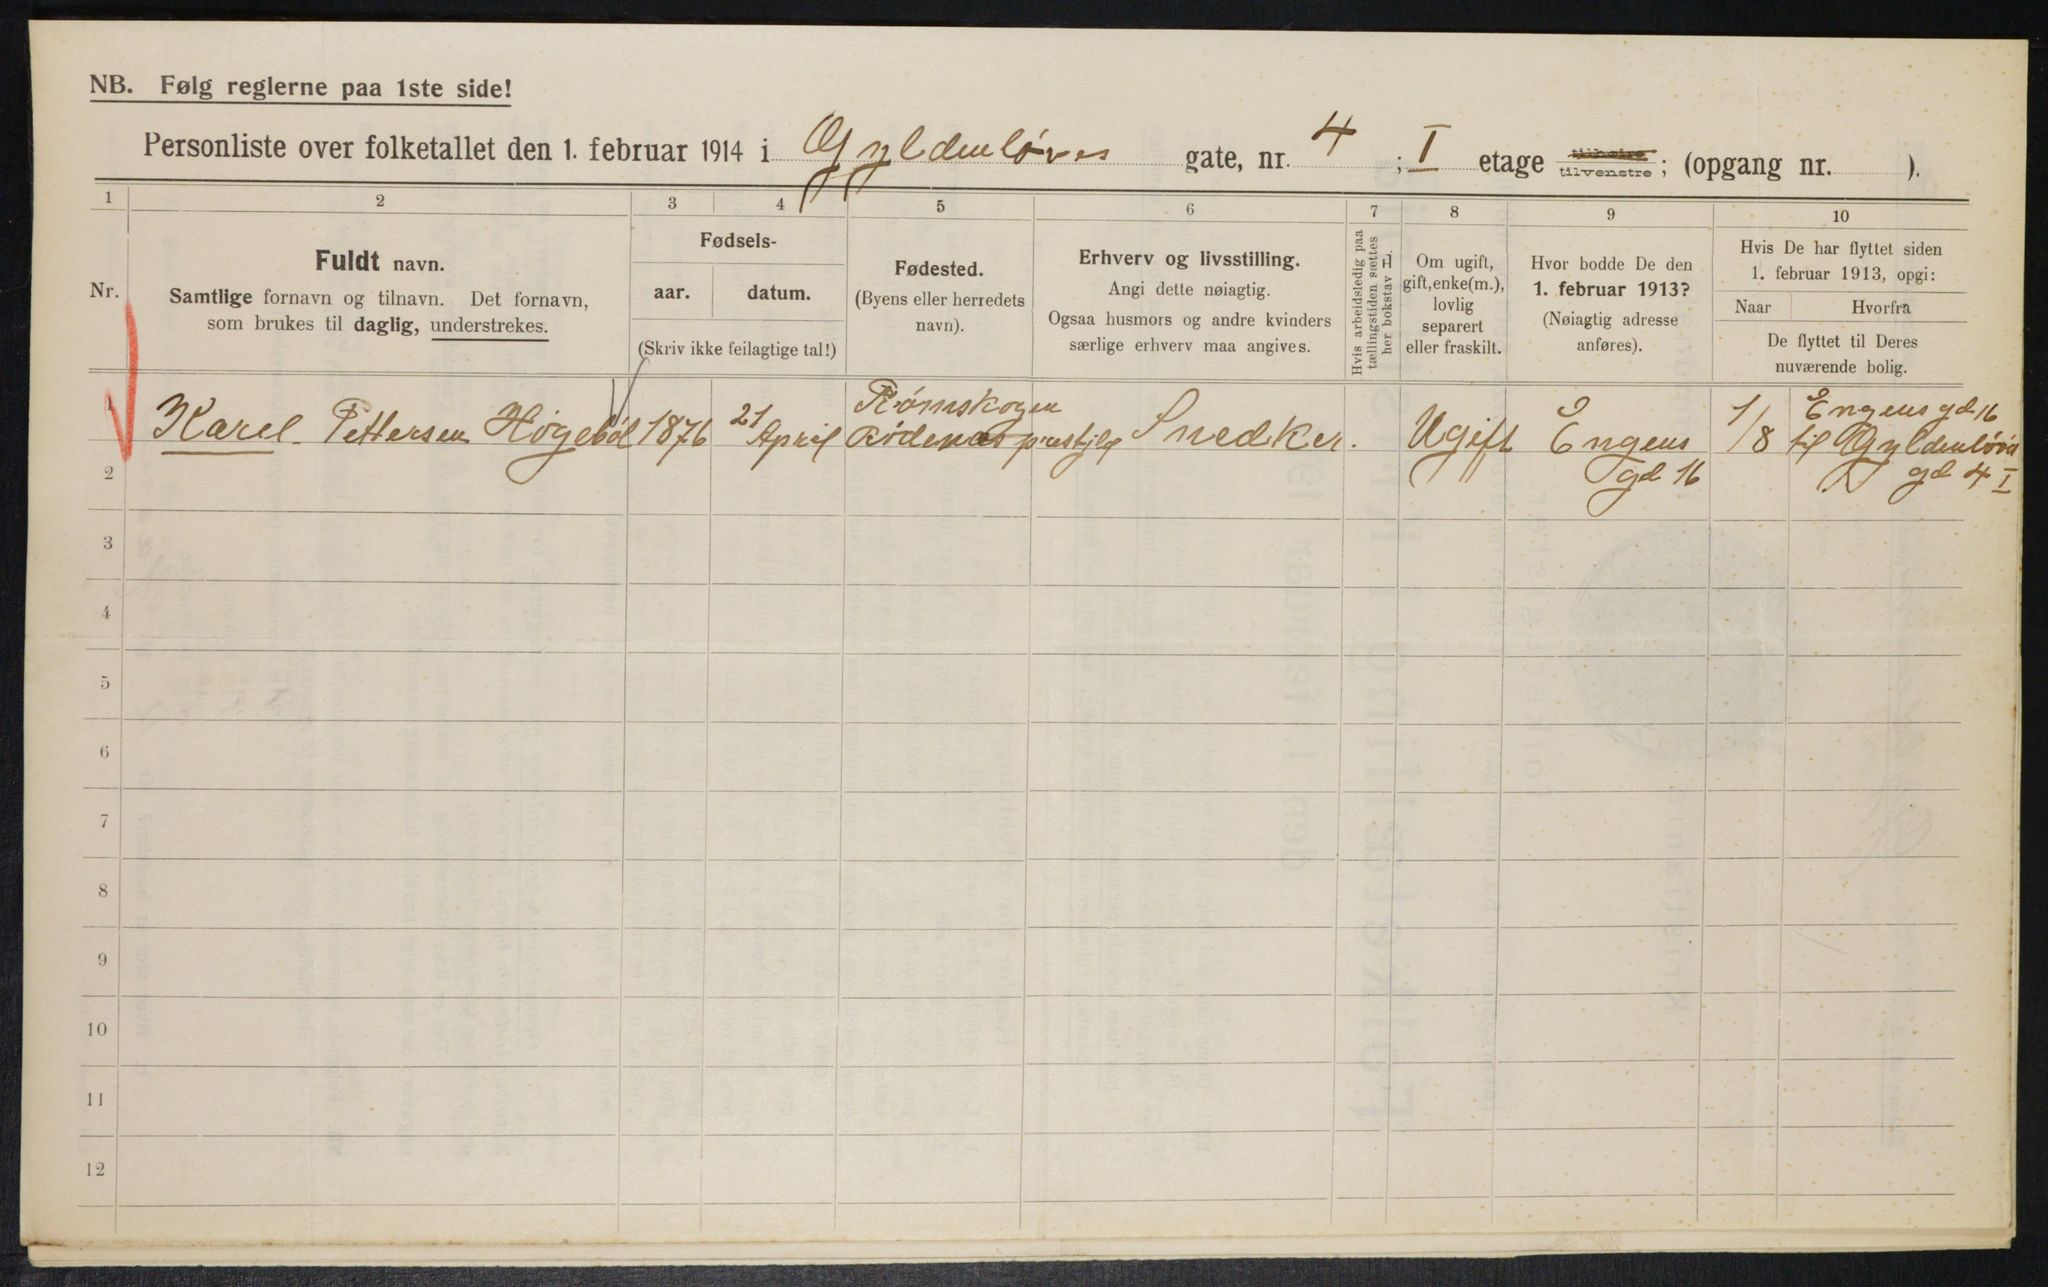 NB. Følg reglerne paa 1ste side!
Personliste over folketallet den 1. februar 1914 i Gyldenløves gate, nr. 4; I etage tilhøire tilvenstre; (opgang nr. ).
1 2 3 4 5 6 7 8 9 10
Nr.
Fuldt navn.
Samtlige fornavn og tilnavn. Det fornavn,
som brukes til daglig, understrekes.
Fødsels-
aar. datum.
(Skriv ikke feilagtige tal!)
Fødested.
(Byens eller herredets
navn).
Erhverv og livsstilling.
Angi dette nøiagtig.
Ogsaa husmors og andre kvinders
særlige erhverv maa angives.
Hvis arbeidsledig paa
tællingstiden sættes
her bokstav L.
Om ugift,
gift, enke(m.),
lovlig
separert
eller fraskilt.
Hvor bodde De den
1. februar 1913?
(Nøiagtig adresse
anføres).
Hvis De har flyttet siden
1. februar 1913, opgi:
Naar Hvorfra
De flyttet til Deres
nuværende bolig.
1 Karel Pettersen Høgebøl 1876 21 April
Rømskogen
Rødenæs prestjeg
Snedker. Ugift
Engens
gd 16
1/8
Engens gd 16
til Gyldenløves
gd 4 I
2
3
4
5
6
7
8
9
10
11
12